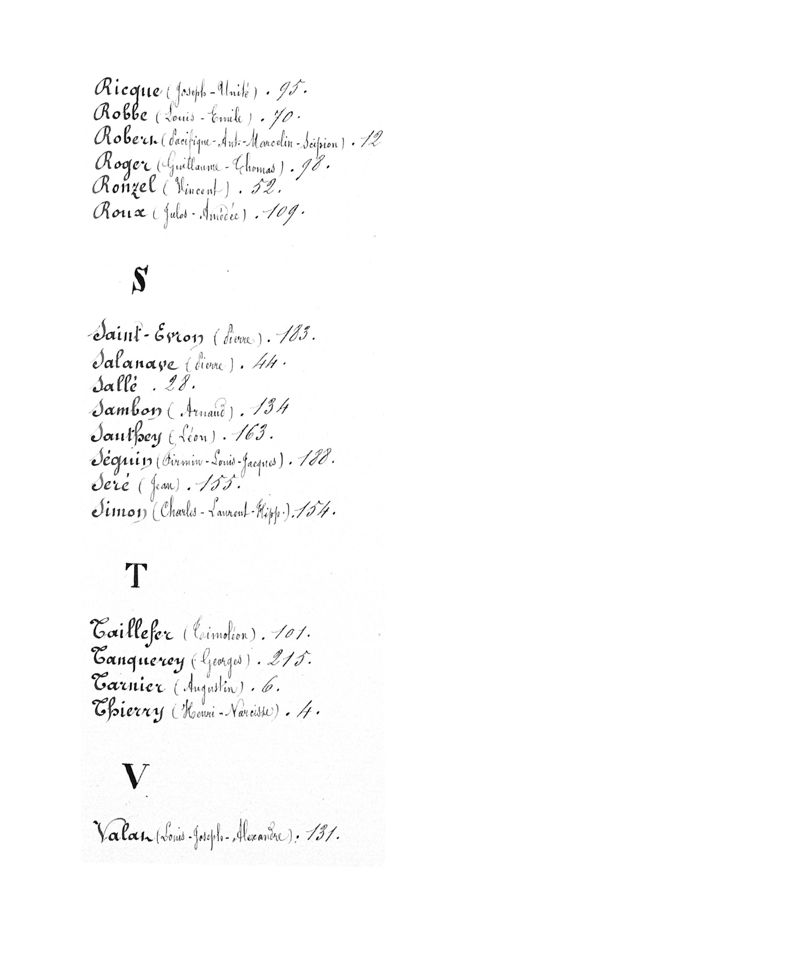 Ricque (Joseph-Unité). 95.
Robbe (Louis-Emile). 70.
Robert (Pacifique-Ant.-Marcelin-Scipion). 12
Roger (Guillaume-Thomas). 98.
Ronzel (Vincent). 52.
Roux (Jules-Amédée). 109.
S
Saint-Evron (Pierre). 183.
Salanave (Pierre). 44.
Sallé. 28.
Sambon (Arnaud). 134
Sauthey (Léon). 163.
Séguin (Firmin-Louis-Jacques). 188.
Seré (Jean). 155.
Simon (Charles-Laurent-Hipp.). 154.
T
Taillefer (Timoléon). 101.
Tanquerey (Georges). 215.
Tarnier (Augustin). 6.
Thierry (Henri-Narcisse). 4.
V
Valat (Louis-Joseph-Alexandre). 131.